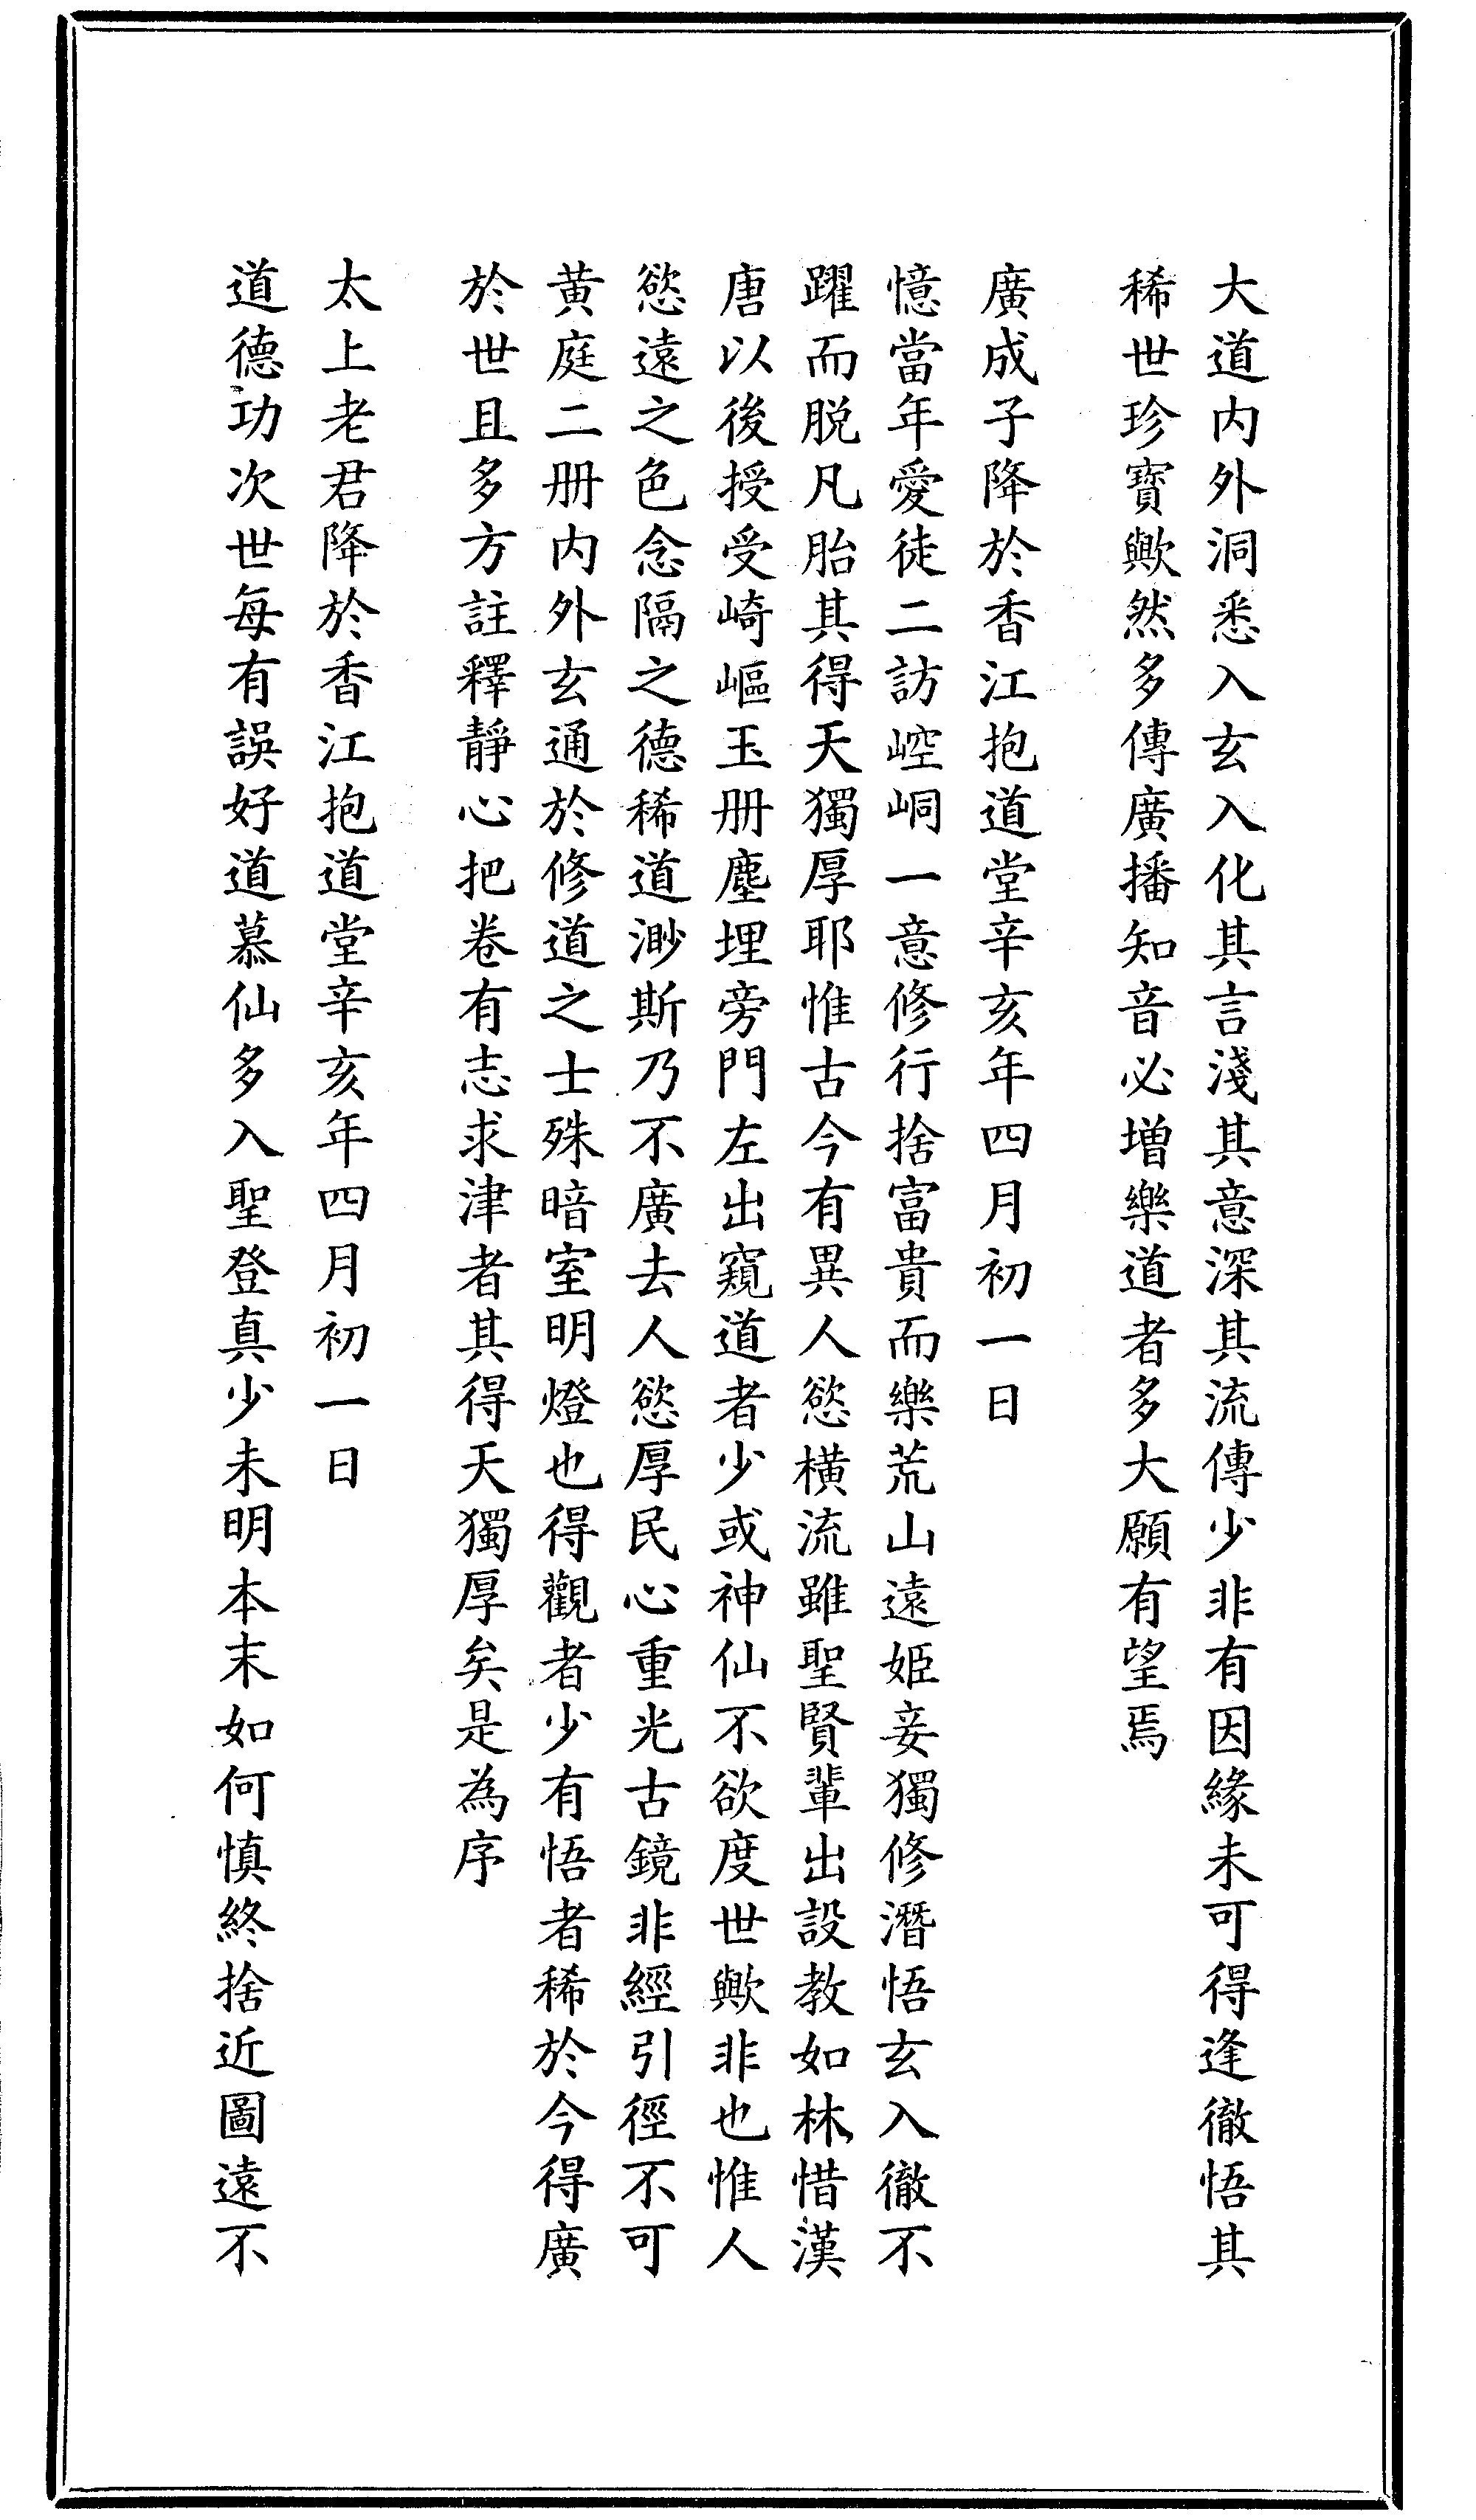 大道内外洞悉入玄入化其言淺其意深其流傳少非有因緣未可得逢徹悟其
稀世珍寶歟然多傳廣播知音必增樂道者多大願有望焉
廣成子降於香江抱道堂辛亥年四月初一日
憶當年愛徒二訪崆峒一意修行捨富貴而樂荒山遠姬妾獨修潛悟玄入徹不
躍而脱凡胎其得天獨厚耶惟古今有異人慾橫流雖聖賢輩出設教如林惜漢
唐以後授受崎嶇玉册塵埋旁門左出窺道者少或神仙不欲度世歟非也惟人
慾遠之色念隔之德稀道渺斯乃不廣去人慾厚民心重光古鏡非經引徑不可
黄庭二册内外玄通於修道之士殊暗室明燈也得觀者少有悟者稀於今得廣
於世且多方註釋靜心把卷有志求津者其得天獨厚矣是為序
太上老君降於香江抱道堂辛亥年四月初一日
道德功次世每有誤好道慕仙多入聖登真少未明本末如何慎終捨近圖遠不